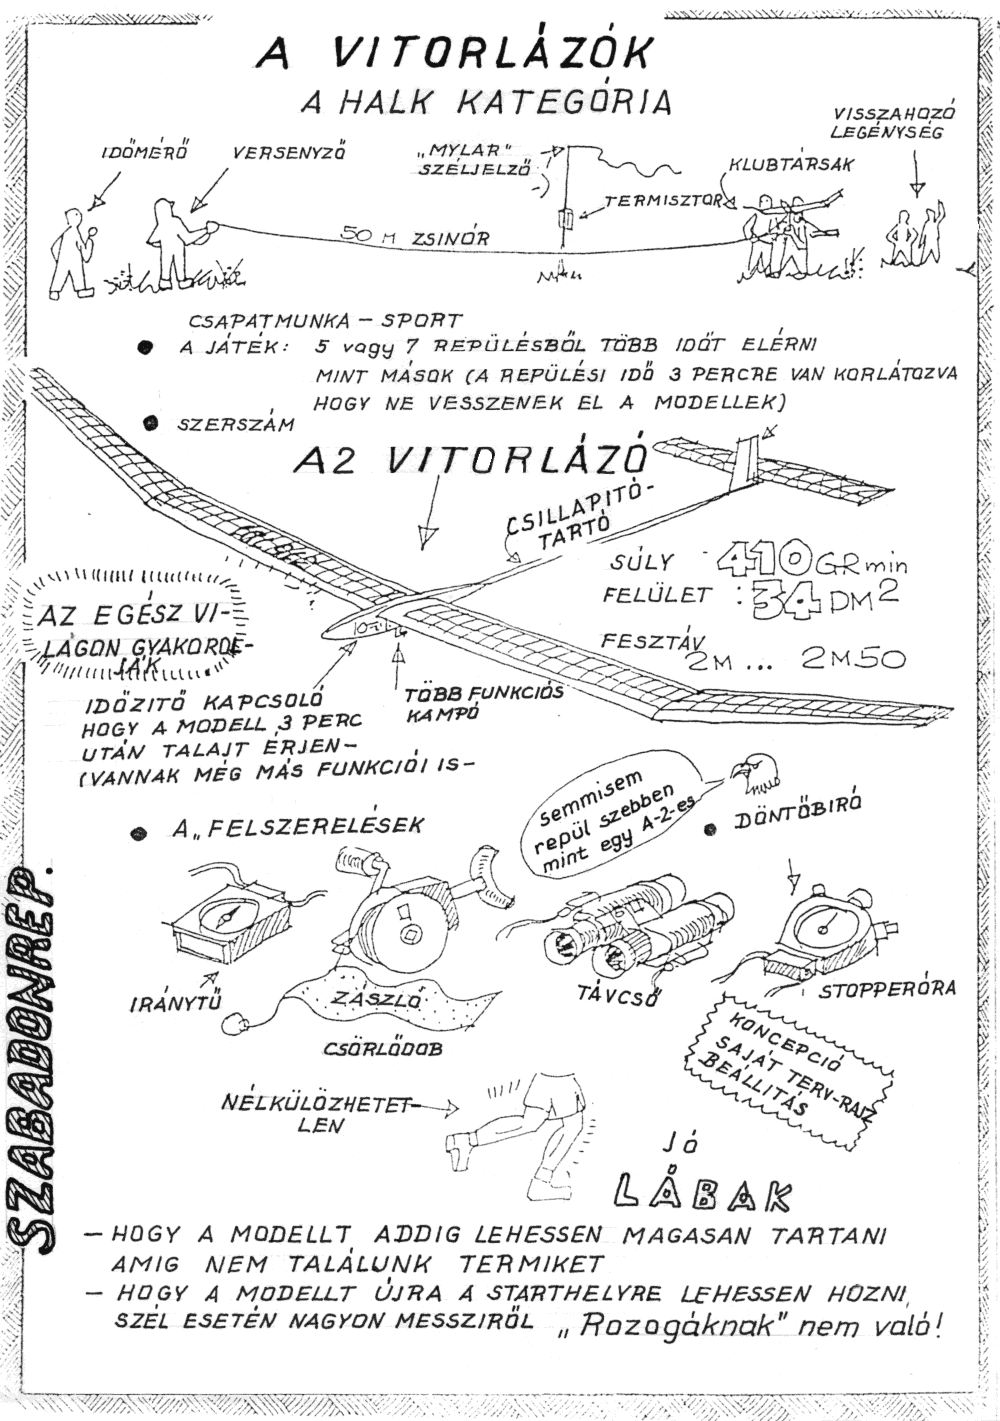 A VITORLÁZÓK
A HALK KATEGÓRIA
VISSZAHOZÓ
LEGÉNYSÉG
IDŐMÉRŐ
VERSENYZŐ
„MYLAR"
SZÉLJELZŐ
KLUBTÁRSAK
TERMISZTOR
50 M ZSINÓR
CSAPATMUNKA – SPORT
● A JÁTÉK: 5 vagy 7 REPÜLÉSBŐL TÖBB IDŐT ELÉRNI
MINT MÁSOK (A REPÜLÉSI IDŐ 3 PERCRE VAN KORLÁTOZVA
HOGY NE VESSZENEK EL A MODELLEK)
● SZERSZÁM
A2 VITORLÁZÓ
CSILLAPITÓ-
TARTÓ
SÚLY - 410 GR min
FELÜLET : 34 DM2
FESZTÁV
2M ... 2M50
AZ EGÉSZ VI-
LÁGON GYAKOROL-
JÁK
IDŐZITŐ KAPCSOLÓ
HOGY A MODELL 3 PERC
UTÁN TALAJT ÉRJEN –
(VANNAK MÉG MÁS FUNKCIÓI IS –
TÖBB FUNKCIÓS
KAMPÓ
semmisem
repül szebben
mint egy A-2-es
● DÖNTŐBIRÓ
● A „FELSZERELÉSEK
IRÁNYTŰ
ZÁSZLÓ
CSÖRLŐDOB
TÁVCSŐ
STOPPERÓRA
KONCEPCIÓ
SAJÁT TERV-RAJZ
BEÁLLITÁS
NÉLKÜLÖZHETET-
LEN
JÓ
LÁBAK
– HOGY A MODELLT ADDIG LEHESSEN MAGASAN TARTANI
AMIG NEM TALÁLUNK TERMIKET
– HOGY A MODELLT ÚJRA A STARTHELYRE LEHESSEN HOZNI,
SZÉL ESETÉN NAGYON MESSZIRŐL „Rozogáknak" nem való!
SZABADONREP.